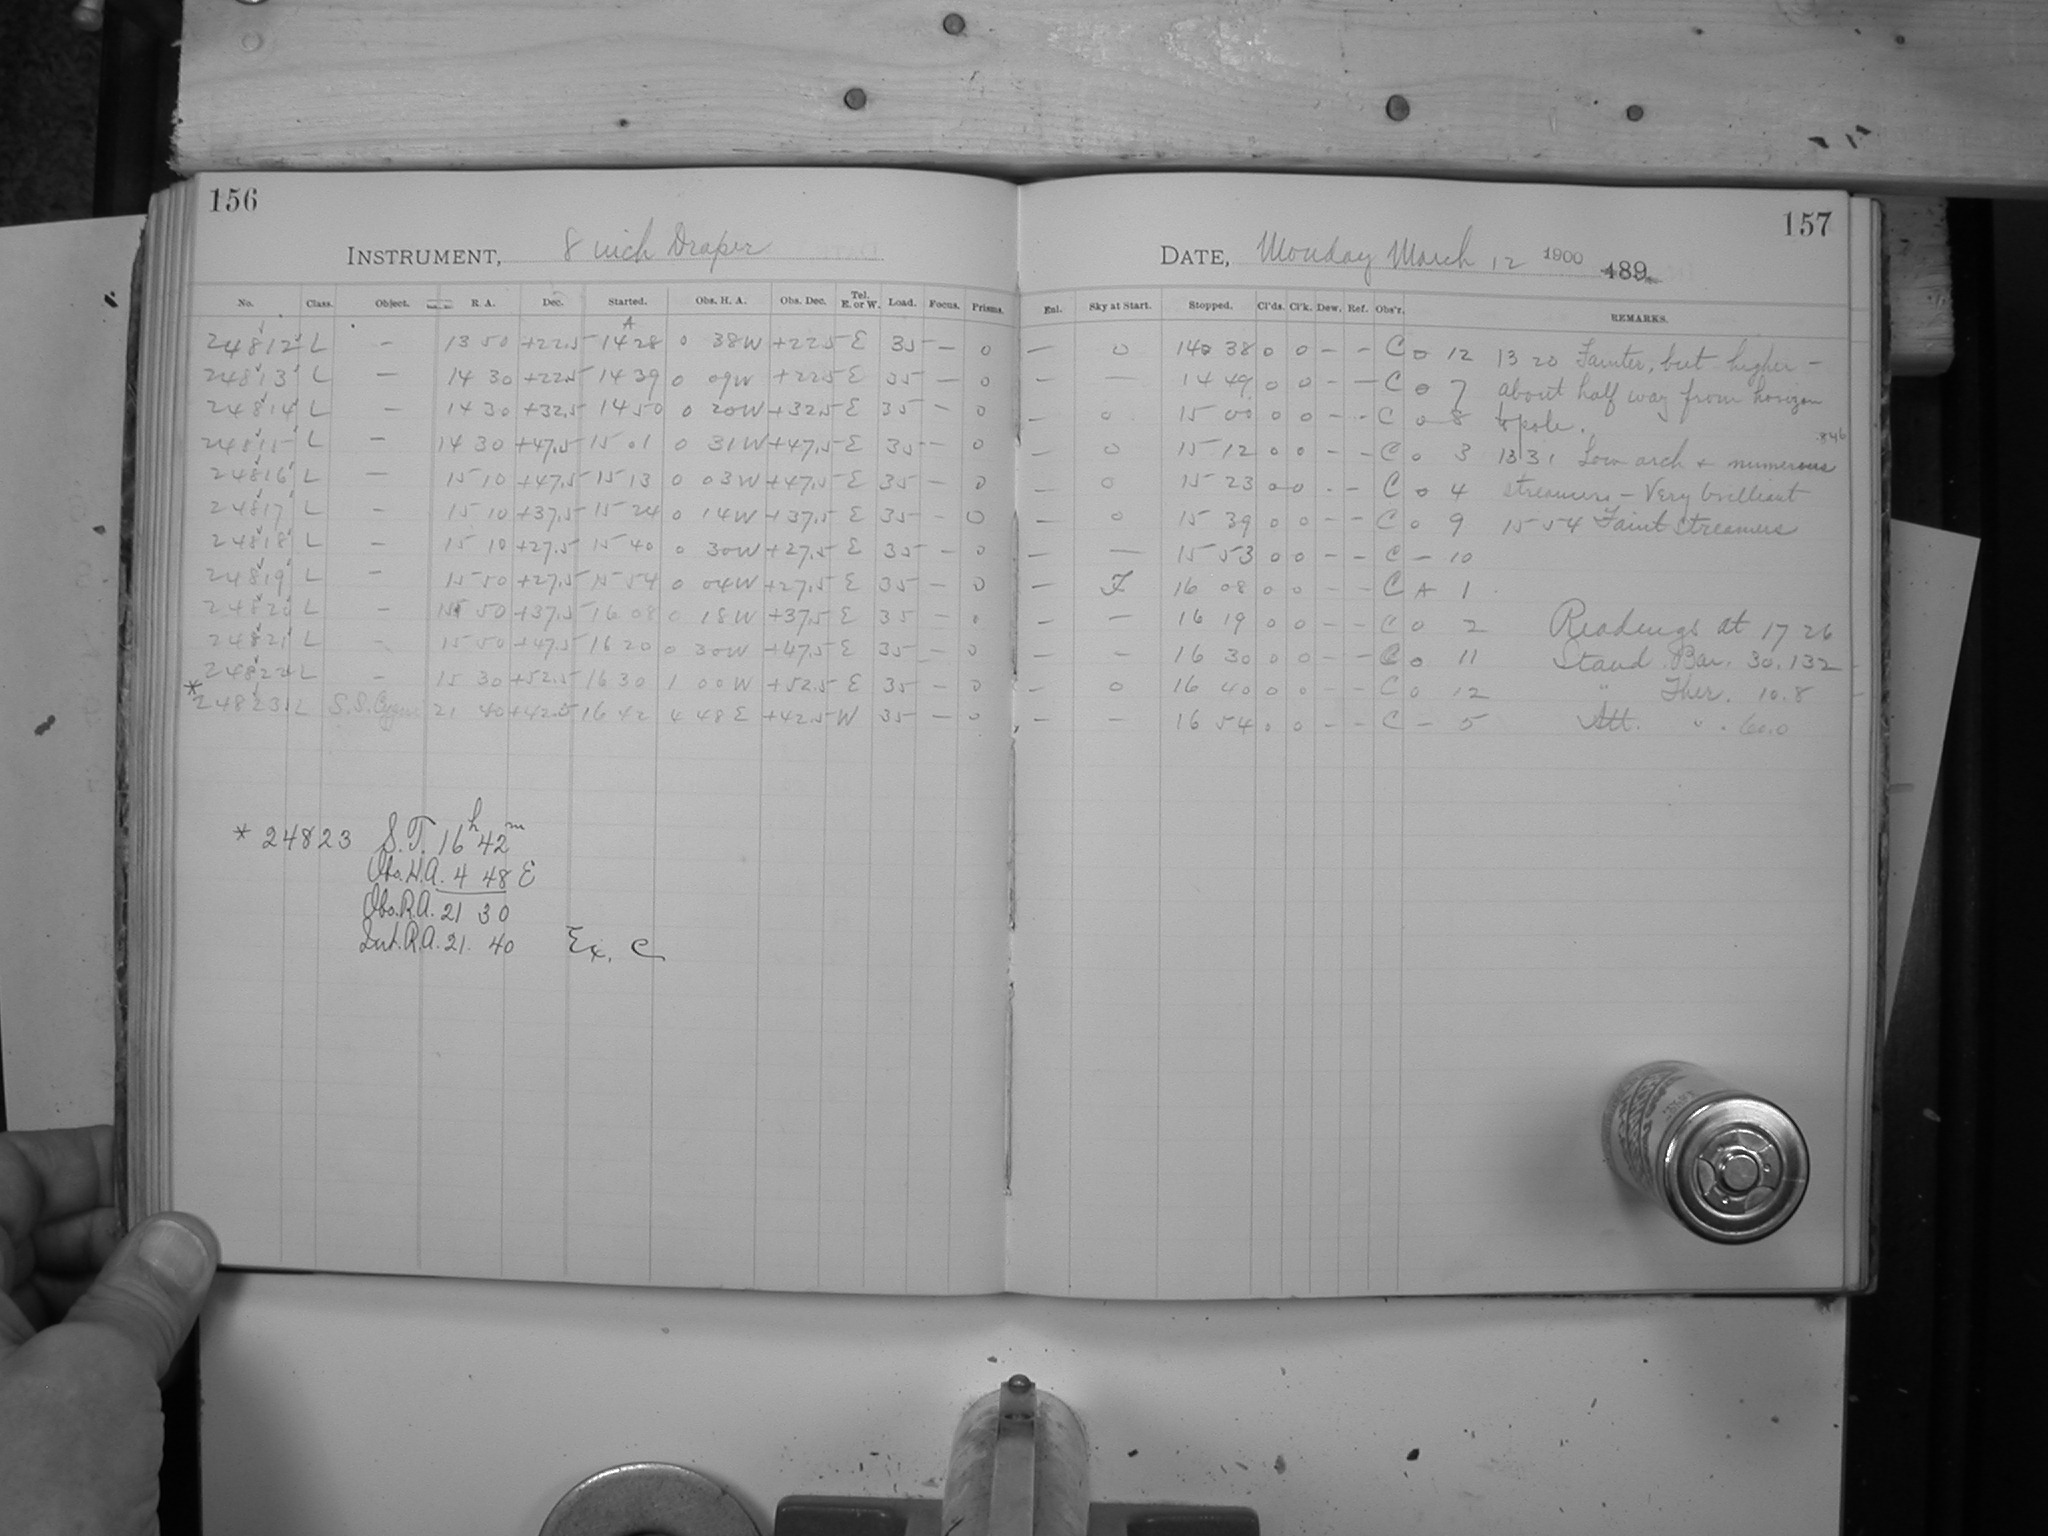 156
INSTRUMENT, 8 inch Draper
No. Class. Object. R. A. Dec. Started. Obs. H. A. Obs. Dec. Tel. E. or W. Load. Focus. Prisms.
A
24812 L — 13 50 +22.5 14 28 0 38W +22.5 E 35 — 0
24813 L — 14 30 +22.5 14 39 0 09W +22.5 E 35 — 0
24814 L — 14 30 +32.5 14 50 0 20W +32.5 E 35 — 0
24815 L — 14 30 +47.5 15 01 0 31W +47.5 E 35 — 0
24816 L — 15 10 +47.5 15 13 0 03W +47.5 E 35 — 0
24817 L — 15 10 +37.5 15 24 0 14W +37.5 E 35 — 0
24818 L — 15 10 +27.5 15 40 0 30W +27.5 E 35 — 0
24819 L — 15 50 +27.5 15 54 0 04W +27.5 E 35 — 0
24820 L — 15 50 +37.5 16 08 0 18W +37.5 E 35 — 0
24821 L — 15 50 +47.5 16 20 0 30W +47.5 E 35 — 0
24822 L — 15 30 +52.5 16 30 1 00W +52.5 E 35 — 0
* 24823 L S.S. Cygni 21 40 +42.5 16 42 4 48 E +42.5 W 35 — 0
* 24823 S.T. 16h 42m
Obs. H.A. 4 48 E
Obs. R.A. 21 30
Int. R.A. 21 40 Ex. C
157
DATE, Monday March 12 1900 189
Enl. Sky at Start. Stopped. Cl'ds. Cl'k. Dew. Ref. Obs'r. REMARKS.
— 0 14 38 0 0 — — C 0 12 13 20 Fainter, but higher —
— — 14 49 0 0 — — C 0 7 about half way from horizon
— 0 15 00 0 0 — — C 0 8 to pole.
— 0 15 12 0 0 — — C 0 3 13 31 Low arch + numerous
— 0 15 23 0 0 — — C 0 4 streamers — Very brilliant
— 0 15 39 0 0 — — C 0 9 15 54 Faint Streamers
— — 15 53 0 0 — — C — 10
— F 16 08 0 0 — — C A 1
— — 16 19 0 0 — — C 0 2 Readings at 17 26
— — 16 30 0 0 — — C 0 11 Stand. Bar. 30.132
— 0 16 40 0 0 — — C 0 12 " Ther. 10.8
— — 16 54 0 0 — — C — 5 Att. " 60.0